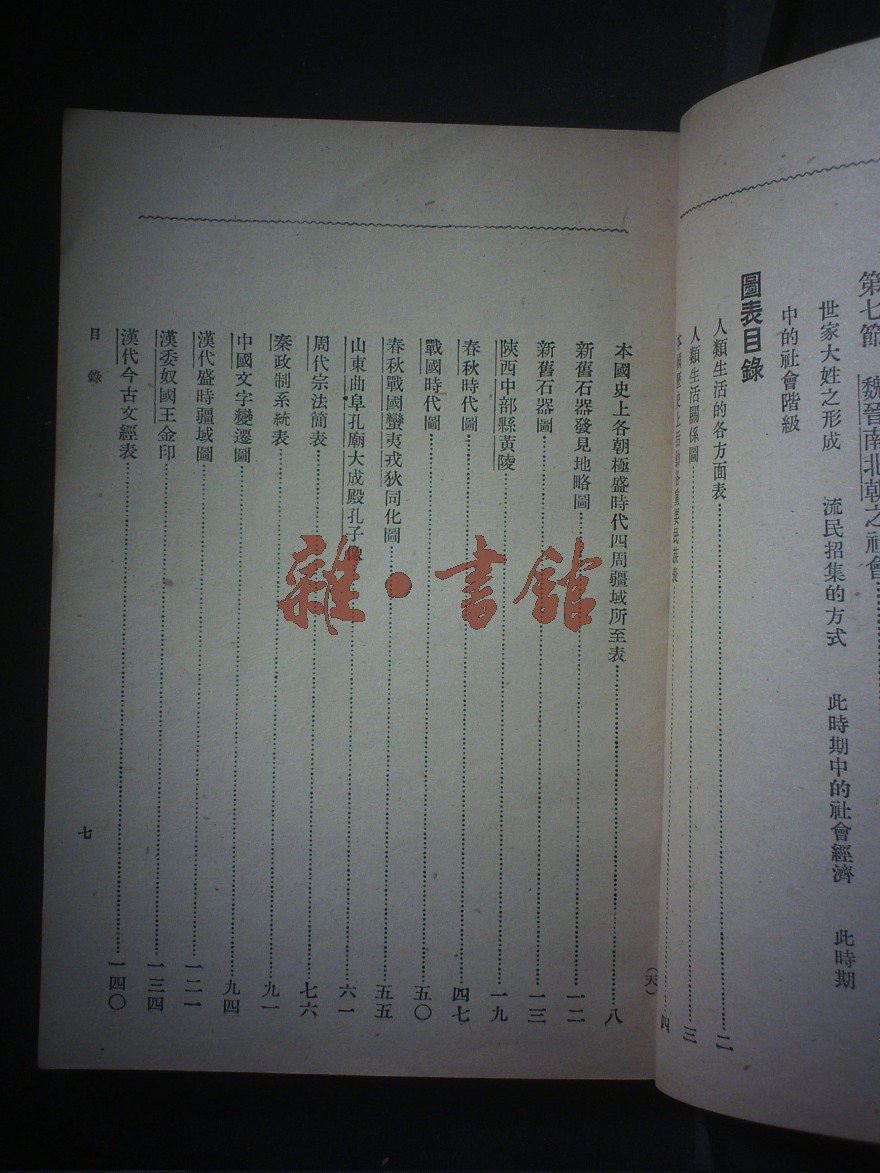 第七節 魏晉南北朝之社會
世家大姓之形成 流民招集的方式 此時期中的社會經濟 此時期
中的社會階級
圖表目錄
人類生活的各方面表 二
人類生活關係圖 三
本國歷史上活動各重要民族表 四
(天)
本國史上各朝極盛時代四周疆域所至表 八
新舊石器發見地略圖 一二
新舊石器圖 一三
陝西中部縣黃陵 一九
春秋時代圖 四七
戰國時代圖 五〇
春秋戰國蠻夷戎狄同化圖 五五
山東曲阜孔廟大成殿孔子像 六一
周代宗法簡表 七六
秦政制系統表 九一
中國文字變遷圖 九四
漢代盛時疆域圖 一二一
漢委奴國王金印 一三四
漢代今古文經表 一四〇
目錄
七
雜·書館